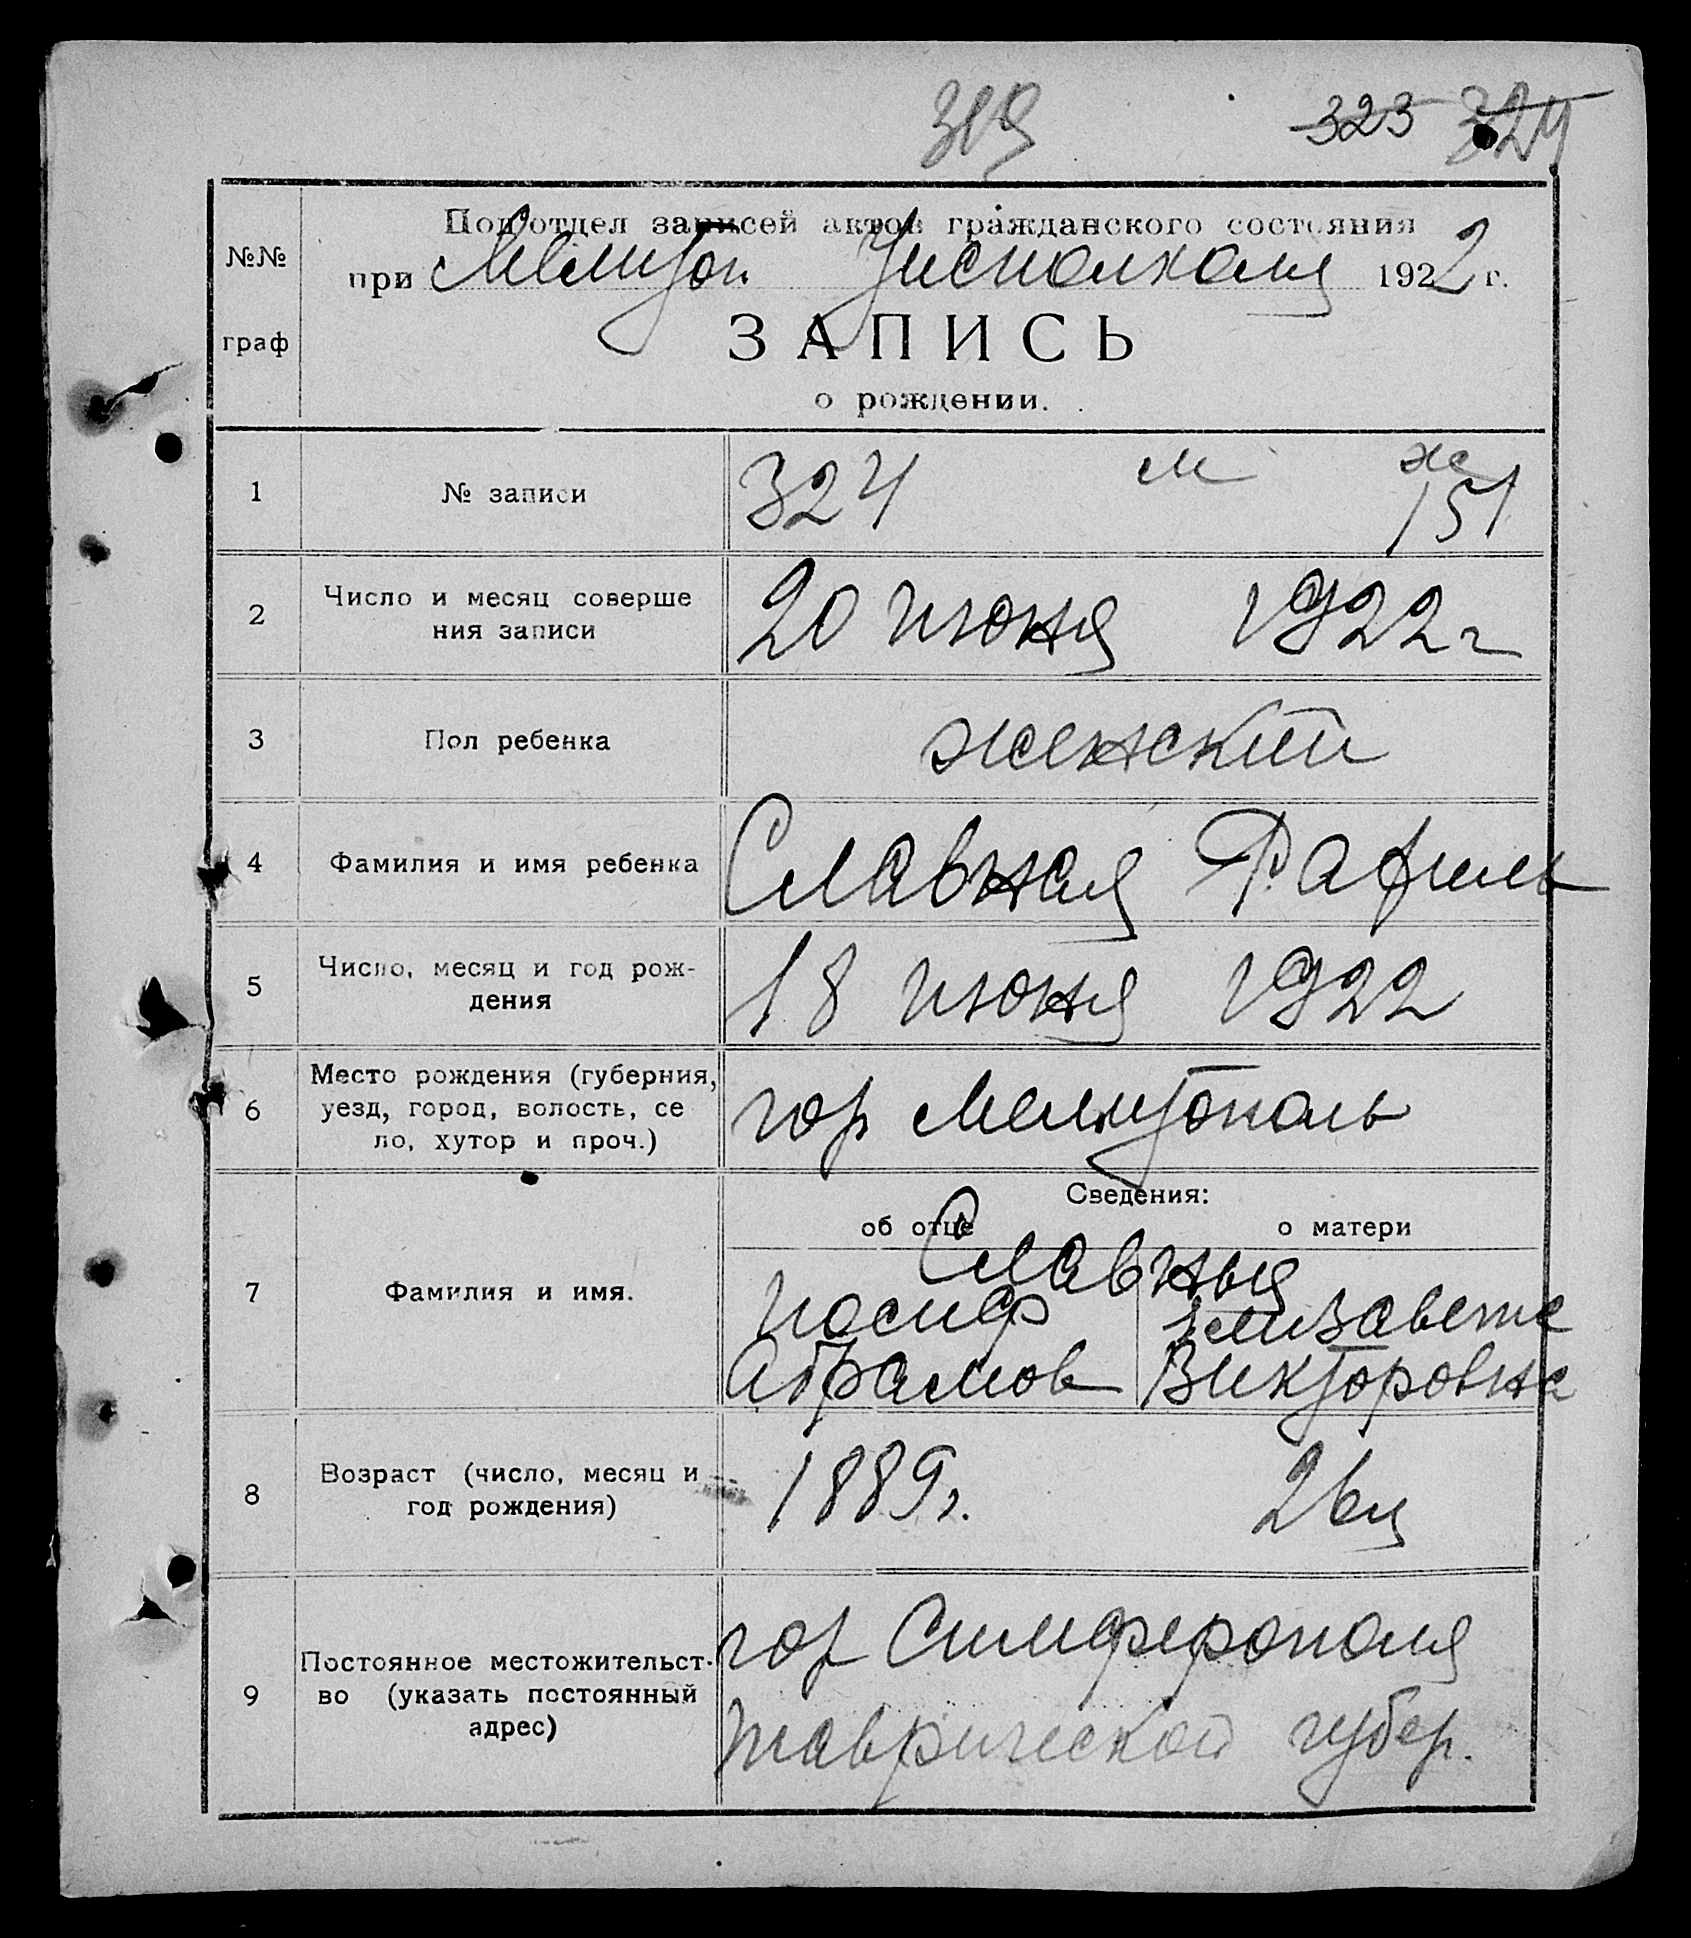 319 323 324
Подотдел записей актов гражданского состояния
№№
при Мелитоп. Уисполкома 1922 г.
граф
ЗАПИСЬ
о рождении.
1 № записи 324 м ж 151
2 Число и месяц соверше
ния записи
20 июня 1922 г
3 Пол ребенка женский
4 Фамилия и имя ребенка Славная Рафиль
5 Число, месяц и год рож-
дения
18 июня 1922
6 Место рождения (губерния,
уезд, город, волость, се
ло, хутор и проч.)
гор Мелитополь
Сведения:
об отце о матери
7 Фамилия и имя.
Славныя
Иосиф Елизавета
Абрамов Викторовна
8 Возраст (число, месяц и
год рождения)
1889 г.
9 Постоянное местожительст-
во (указать постоянный
адрес)
гор Симферополя
Таврической губер.